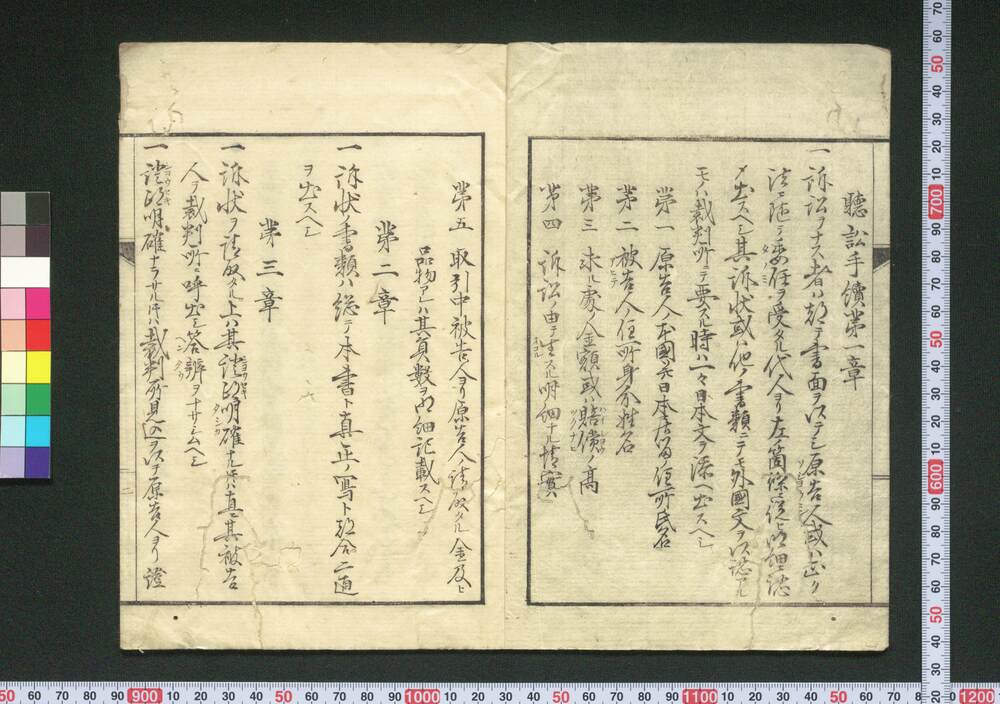 聴訟手續第一章
一 訴訟ヲナス者ハ都テ書面ヲ以テシ原告人或ハ正シク
法ニ随テ委任ヲ受タル代人ヨリ左ノ箇條ニ従ヒ明細ニ認
メ出スヘシ其訴状或ハ他ノ書類ニテモ外國文ヲ以認タル
モノハ裁判所ニテ要スル時ハ一々日本文ヲ添ヘ出スヘシ
第一 原告人ノ本國并日本居留ノ住所氏名
第二 被告人ノ住所身分姓名
第三 求ル處ノ金額或ハ賠償ノ高
第四 訴訟ノ由テ生スル明細ナル情實
第五 取引中被告人ヨリ原告人ヘ請取タル金及ヒ
品物アレハ其員数ヲ明細記載スヘシ
第二章
一 訴状ノ書類ハ総テ本書ト真正ノ写ト都合二通
ヲ出スヘシ
第三章
一 訴状ヲ請取タル上ハ其證跡明確ナル時ハ直ニ其被告
人ヲ裁判所ニ呼出シ答辨ヲナサシムヘシ
一 證跡明確ナラサル時ハ裁判所見込ヲ以テ原告人ヨリ證